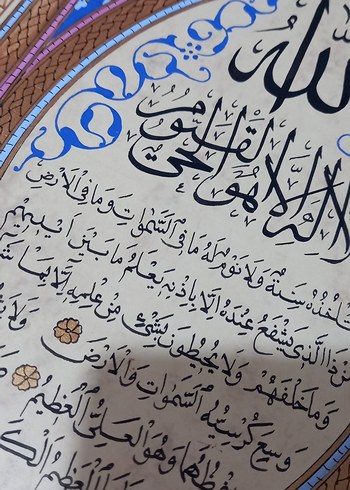 الله
لَا إِلٰهَ إِلَّا هُوَ الْحَيُّ الْقَيُّومُ
تَأْخُذُهُ سِنَةٌ وَلَا نَوْمٌ لَهُ مَا فِي السَّمٰوَاتِ وَمَا فِي الْأَرْضِ
ذَا الَّذِي يَشْفَعُ عِنْدَهُ إِلَّا بِإِذْنِهِ يَعْلَمُ مَا بَيْنَ أَيْدِيهِمْ
وَمَا خَلْفَهُمْ وَلَا يُحِيطُونَ بِشَيْءٍ مِنْ عِلْمِهِ إِلَّا بِمَا
وَسِعَ كُرْسِيُّهُ السَّمٰوَاتِ وَالْأَرْضَ وَلَا
حِفْظُهُمَا وَهُوَ الْعَلِيُّ الْعَظِيمُ
الله الْعَظِيمُ